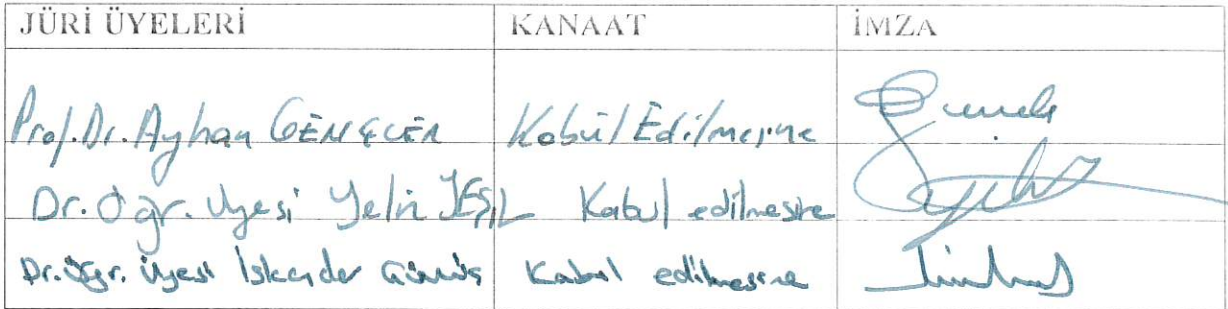 JÜRİ ÜYELERİ KANAAT İMZA
Prof. Dr. Ayhan GENÇLER Kabul Edilmesine
Dr. Öğr. Üyesi Yelin YEŞİL Kabul edilmesine
Dr. Öğr. Üyesi İskender Gümüş Kabul edilmesine